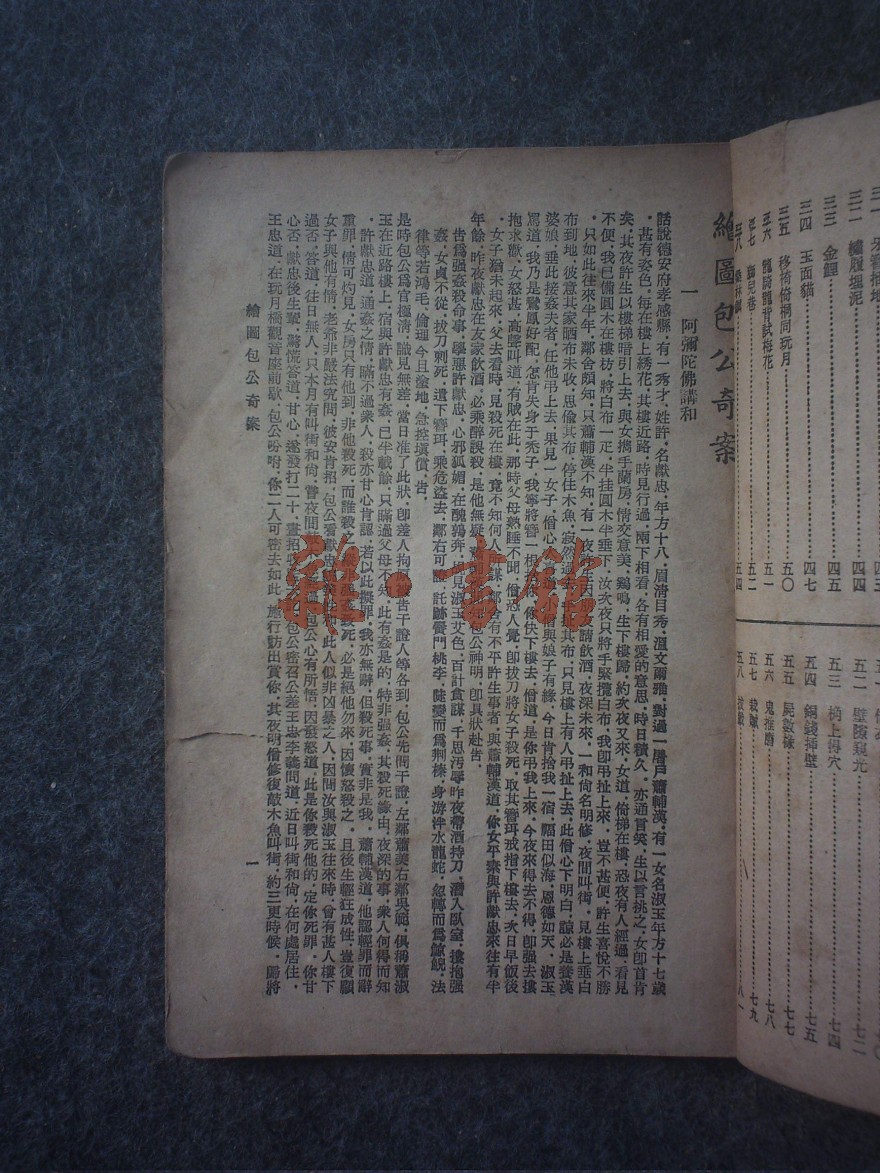 三二 樓履埋泥
四四
三三 金鯉
四五
三四 玉面貓
四七
三五 移椅倚桐同玩月
五〇
三六 龍騎龍背試梅花
五一
三七
五二
五四
五二 壁隙窺光
七二
五三 桷上得穴
七四
五四 銅錢插壁
七五
五五 屍數椽
七七
五六 鬼推磨
七八
五七 栽贓
七九
五八
八一
繪圖包公奇案
一 阿彌陀佛講和
話說德安府孝感縣．有一秀才．姓許．名獻忠．年方十八．眉清目秀．溫文爾雅．對過一屠戶蕭輔漢．有一女名淑玉年方十七歲
．甚有姿色．每在樓上綉花．其樓近路．時見行過．兩下相看．各有相愛的意思．時日積久．亦通言笑．生以言挑之．女即首肯
矣．其夜許生以樓梯暗引上去．與女攜手蘭房．情交意美．鷄鳴．生下樓歸．約次夜又來．女道．倚梯在樓．恐夜有人經過．看見
不便．我已備圓木在樓枋．將白布一疋．半挂圓木半垂下．汝次夜只將手緊攬白布．我即吊扯上來．豈不甚便．許生喜悅不勝
．只如此往來半年．鄰舍頗知．只蕭輔漢不知．有一夜許生因朋友請飲酒．夜深未來．一和尚名明修．夜間叫街．見樓上垂白
布到地．彼意其家晒布未收．思偷其布．停住木魚．寂然過去手扯其布．只見樓上有人吊扯上去．此僧心下明白．諒必是養漢
婆娘．垂此接姦夫者．任他吊上去．果見一女子．僧心
道．
僧與娘子有緣．今日肯捨我一宿．福田似海．恩德如天．淑玉
罵道．我乃是鸞鳳好配．怎肯失身于禿子．我寧將簪一根
你．你快下樓去．僧道．是你吊我上來．今夜來得去不得．即强去摟
抱求歡．女怒甚．高聲叫道．有賊在此．那時父母熟睡不聞．僧恐人覺．即拔刀將女子殺死．取其簪珥戒指下樓去．次日早飯後
．女子猶未起來．父去看時．見殺死在樓．竟不知何人
謀．鄰舍有不平許生事者．與蕭輔漢道．你女年素與許獻忠來往有半
年餘．昨夜獻忠在友家飲酒．必乘醉誤殺．是他無疑．蕭
知包公神明．即具狀赴告．
告為强姦殺命事．學惡許獻忠．心邪狐媚．行醜鶉奔．
見淑玉艾色．百計貪謀．千思污辱．昨夜帶酒持刀．潛入臥室．摟抱强
姦．女貞不從．拔刀刺死．遺下簪珥．乘危盜去．鄰右可證．託跡黌門．桃李陡變而爲荆榛．身游泮水．龍蛇忽轉而爲鯨鯢．法
律等若鴻毛．倫理今且塗地．急控填償．告．
是時包公爲官極清．識見無差．當日准了此狀．即差人拘
告干證人等各到．包公先問干證．左鄰蕭美右鄰吳範．俱稱蕭淑
玉在近路樓上．宿與許獻忠有姦．已半載餘．只瞞過父母不知．此有姦是的．特非强姦．其殺死緣由．夜深的事．衆人何得而知
．許獻忠道．通姦之情．瞞不過衆人．我亦甘心肯認．若以此擬罪．我亦無辭．但殺死事．實非是我．蕭輔漢道．他認輕罪而辭
重罪．情可灼見．女房只有他到．非他殺死．而誰殺之．
死．必是絕他勿來．因懷怒殺之．且後生輕狂成性．豈復顧
女子與他有情．老爺非嚴法究問．彼安肯招．包公看獻忠
和．此人似非凶暴之人．因問汝與淑玉往來時．曾有甚人樓下
過否．答道．往日無人．只本月有叫街和尚．嘗夜間
過．包公心有所悟．因發怒道．此是你殺死他的．定你死罪．你甘
心否．獻忠後生輩．驚慌答道．甘心．遂發打二十．盡招收
．包公密召公差王忠李義問道．近日叫街和尚．在何處居住．
王忠道．在玩月橋觀音座前歇．包公吩咐．你二人可密去如此．施行訪出賞你．其夜明僧修復敲木魚叫街．約三更時候．歸將
繪圖包公奇案
一
雜·書館